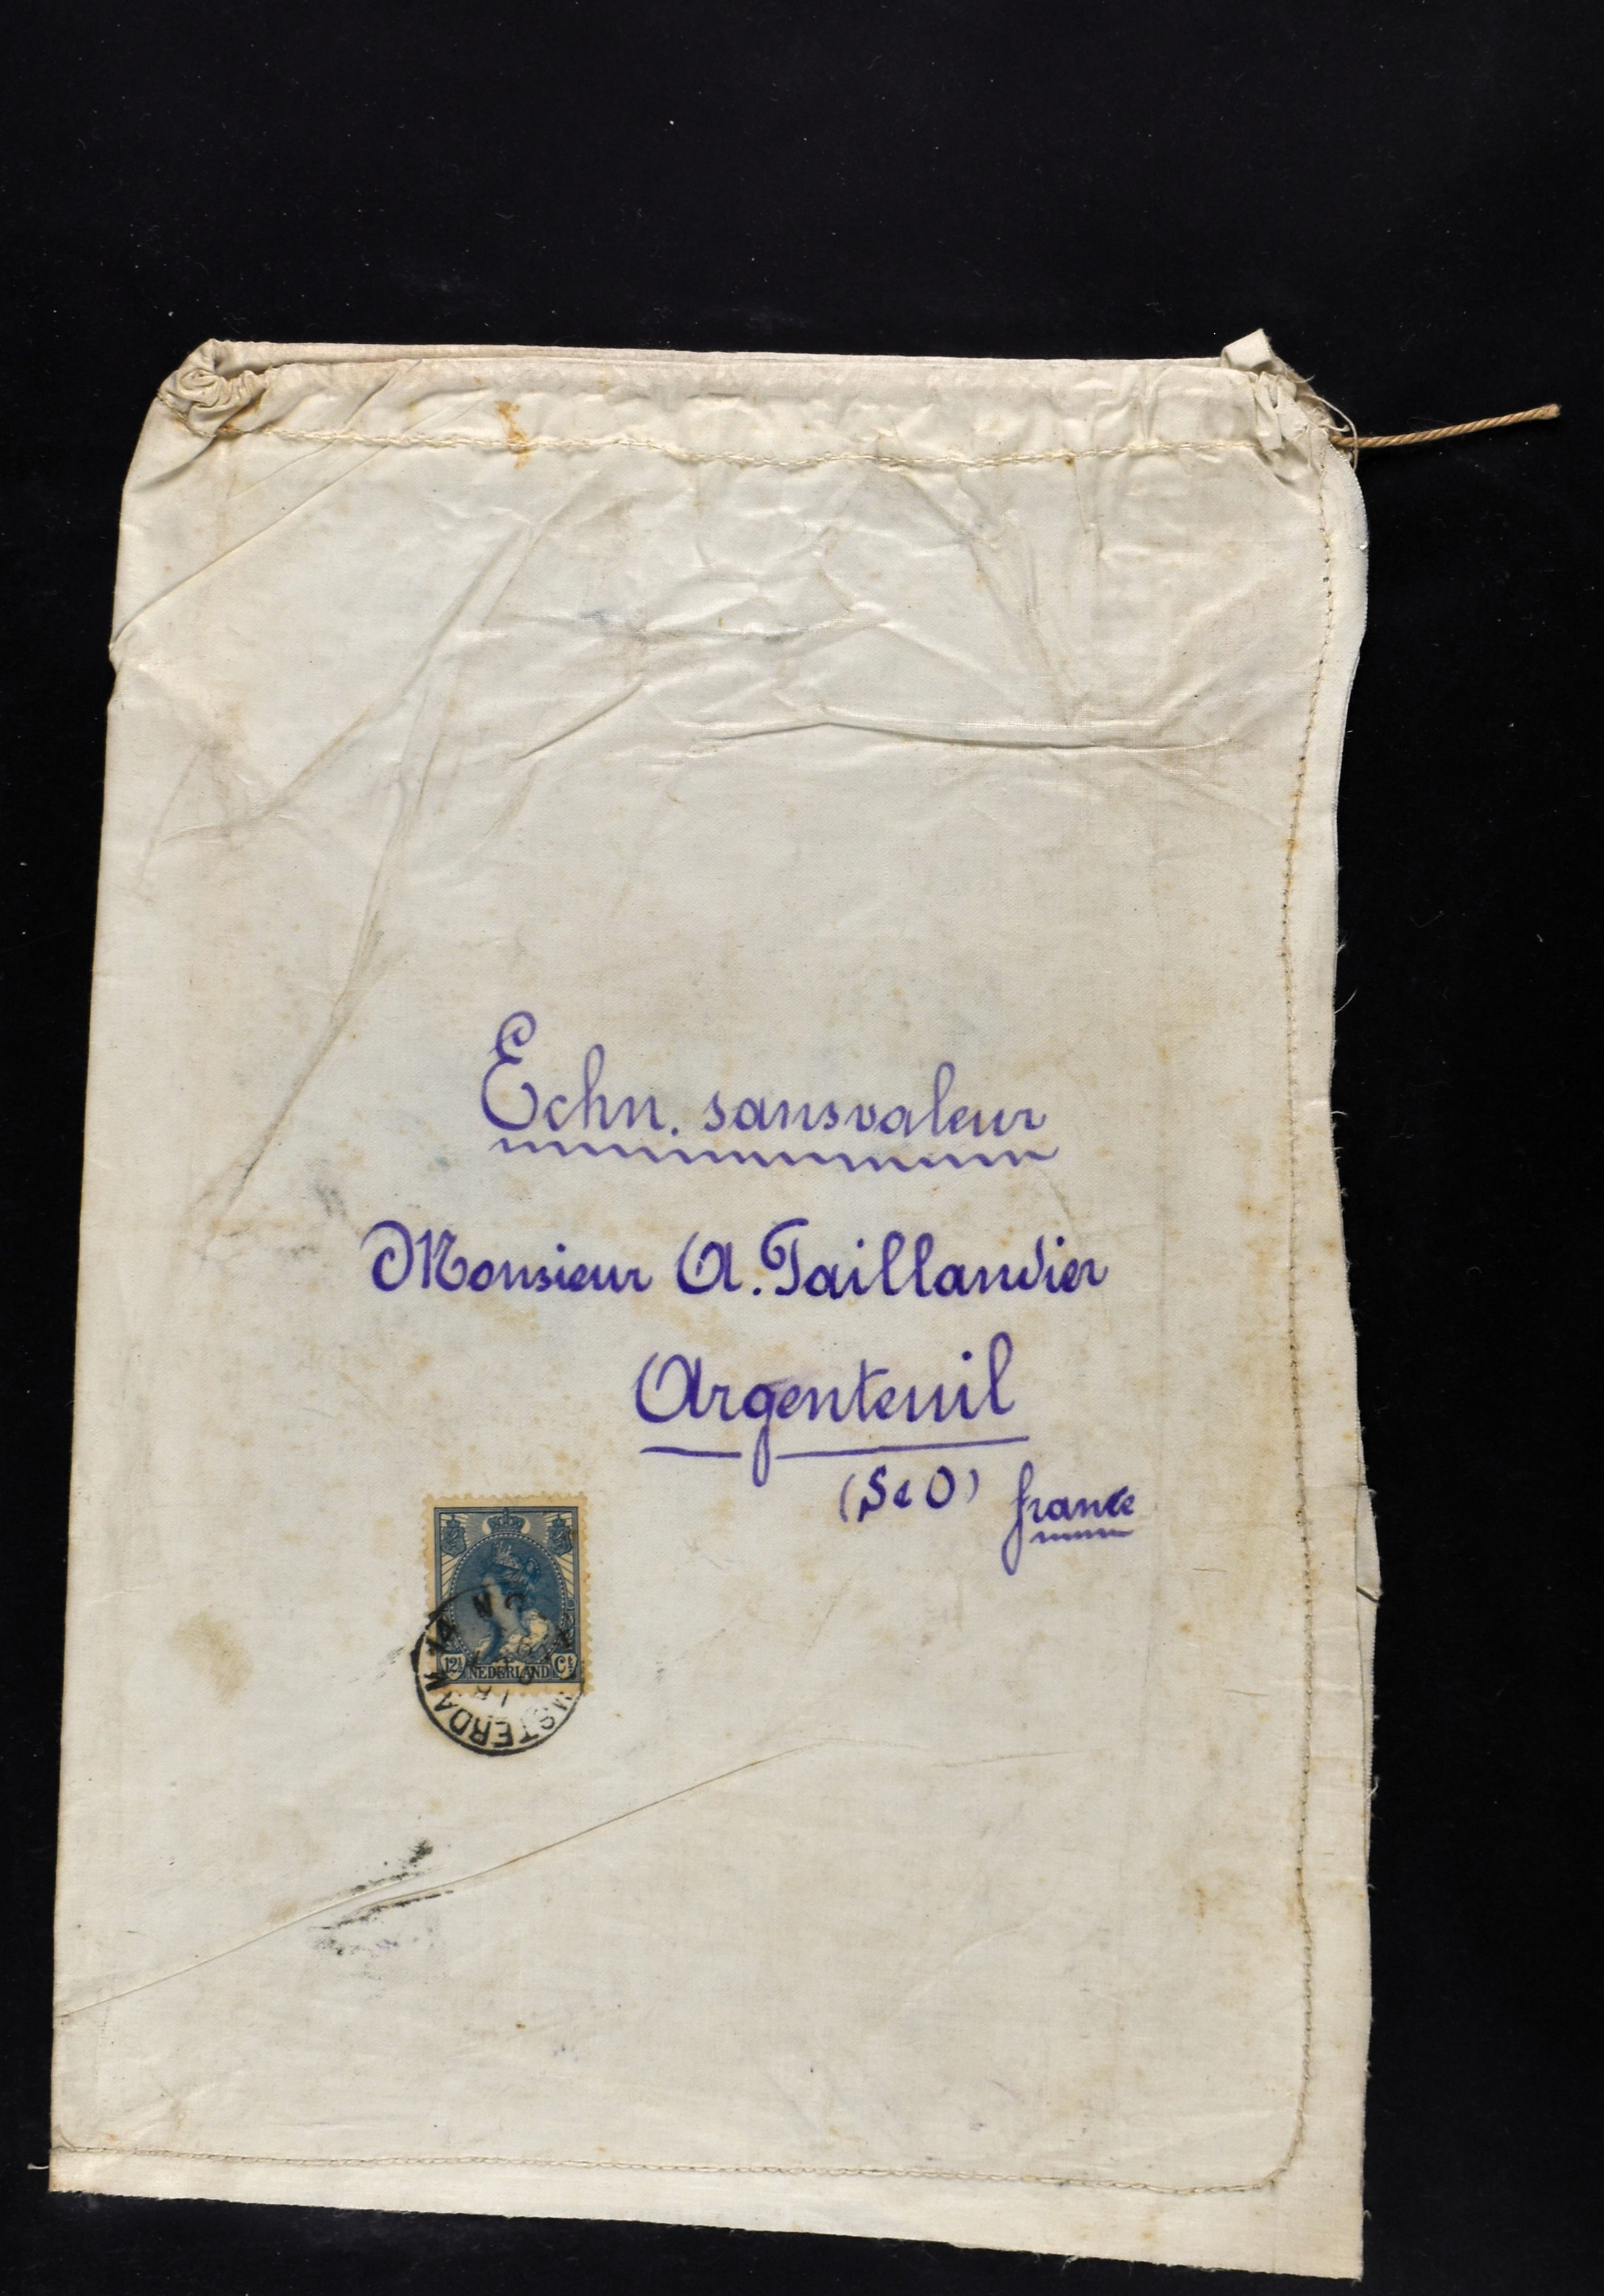 Echn. sansvaleur
Monsieur A. Taillandier
Argenteuil
(S & O) france
12½ NEDERLAND Ct
AMSTERDAM